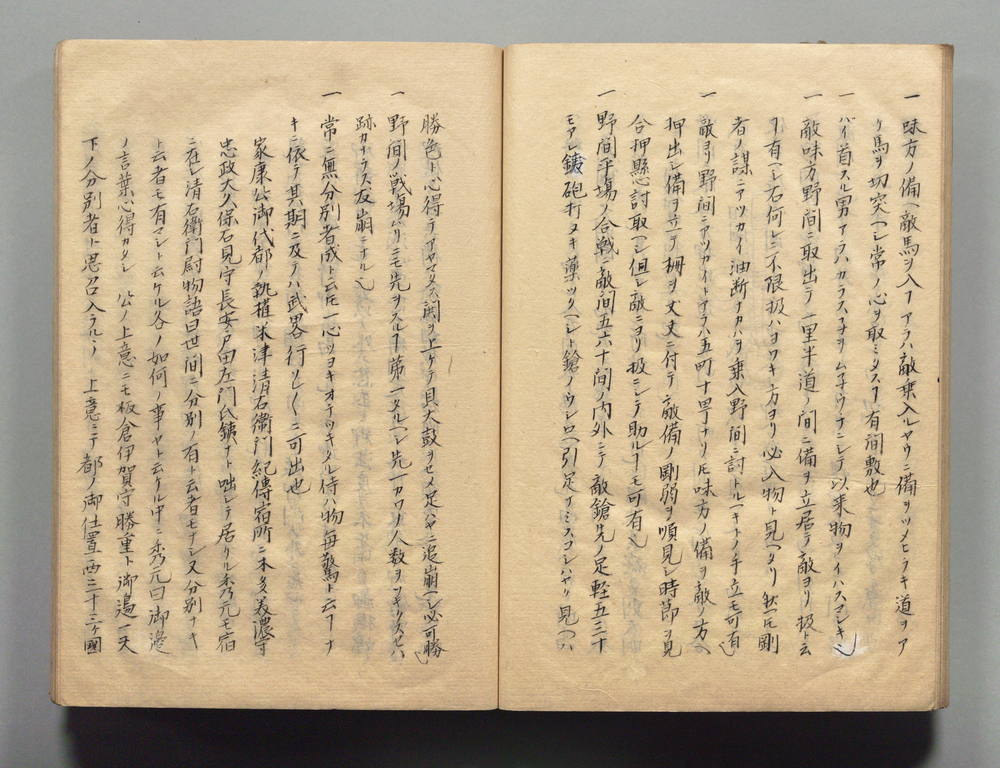 一 味方ノ備ヘ敵馬ヲ入フアラハ敵乗入ルヤウニ備ヲツメヒラキ道ヲア
ケ馬ヲ切突ヘシ常ノ心ヲ取ミタスヿ有間敷也
一 バイ首スル男アラハカラス
一 敵味方野間ニ取出テ一里半道ノ間ニ備ヲ立居テ敵ヨリ扱ト云
ヿ有ヘシ右何レニ不限扱ハヨワキ方ヨリ必入物ト見ヘタリ 然ㇳモ剛
者ノ謀ニアツカイ油断ナカハヲ乗入野間ニ討トルヘキトノ手立モ可有也
一 敵ヨリ野間ニアツカイトナラハ五町十町ナリㇳモ味方ノ備ヲ敵ノ方ヘ
押出シ備ヲ立テ柵ヲ丈丈ニ付テ敵備ノ剛弱ヲ順見シ時節ヲ見
合押懸悉討取ヘシ但シ敵ニヨリ扱ニシテ助ルヿモ可有也
一 野間平場ノ合戦ニ敵間五六十間ノ内外ニテ敵鎗先ノ足軽五三十
モアレ鉄砲打ヌキ薬ツクヘシト鎗ノウシロヘ引足
勝色ト心得テアヤマタス鬨ヲ上ケテ貝大鼓ヲセメ足ハヤニ追崩ヘシ必可勝也
一 野間ノ戦場ムリニモ先ヲスルヿ第一タルヘシ先一カワヲ人数ヲ
跡カナラス友崩ニナル也
一 常ニ無分別者成ト云ㇳモ一心ツヨキオチツキタル侍ハ物毎驚ト云フヿナ
キニ依テ其期ニ及テハ武畧行ツしくニ可出也
家康公御代都ノ執権米津清右衛門紀傳宿所ニ本多美濃守
忠政大久保石見守長安戸田左門氏鉄ナト咄シテ居ケル秀元モ宿
ニ在シ清右衛門尉物語曰世間ニ分別ノ有ト云者モナシ又分別ナキ
ト云者モ有マシト云ケル各ノ如何ノ事ヤト云ケル中ニ秀元曰御邊
ノ言葉心得カタシ 公ノ上意ニモ板倉伊賀守勝重ト御邊一天
下ノ分別者ト思召入ラルヽノ上意ニテ都ノ御仕置西三十三ヶ國